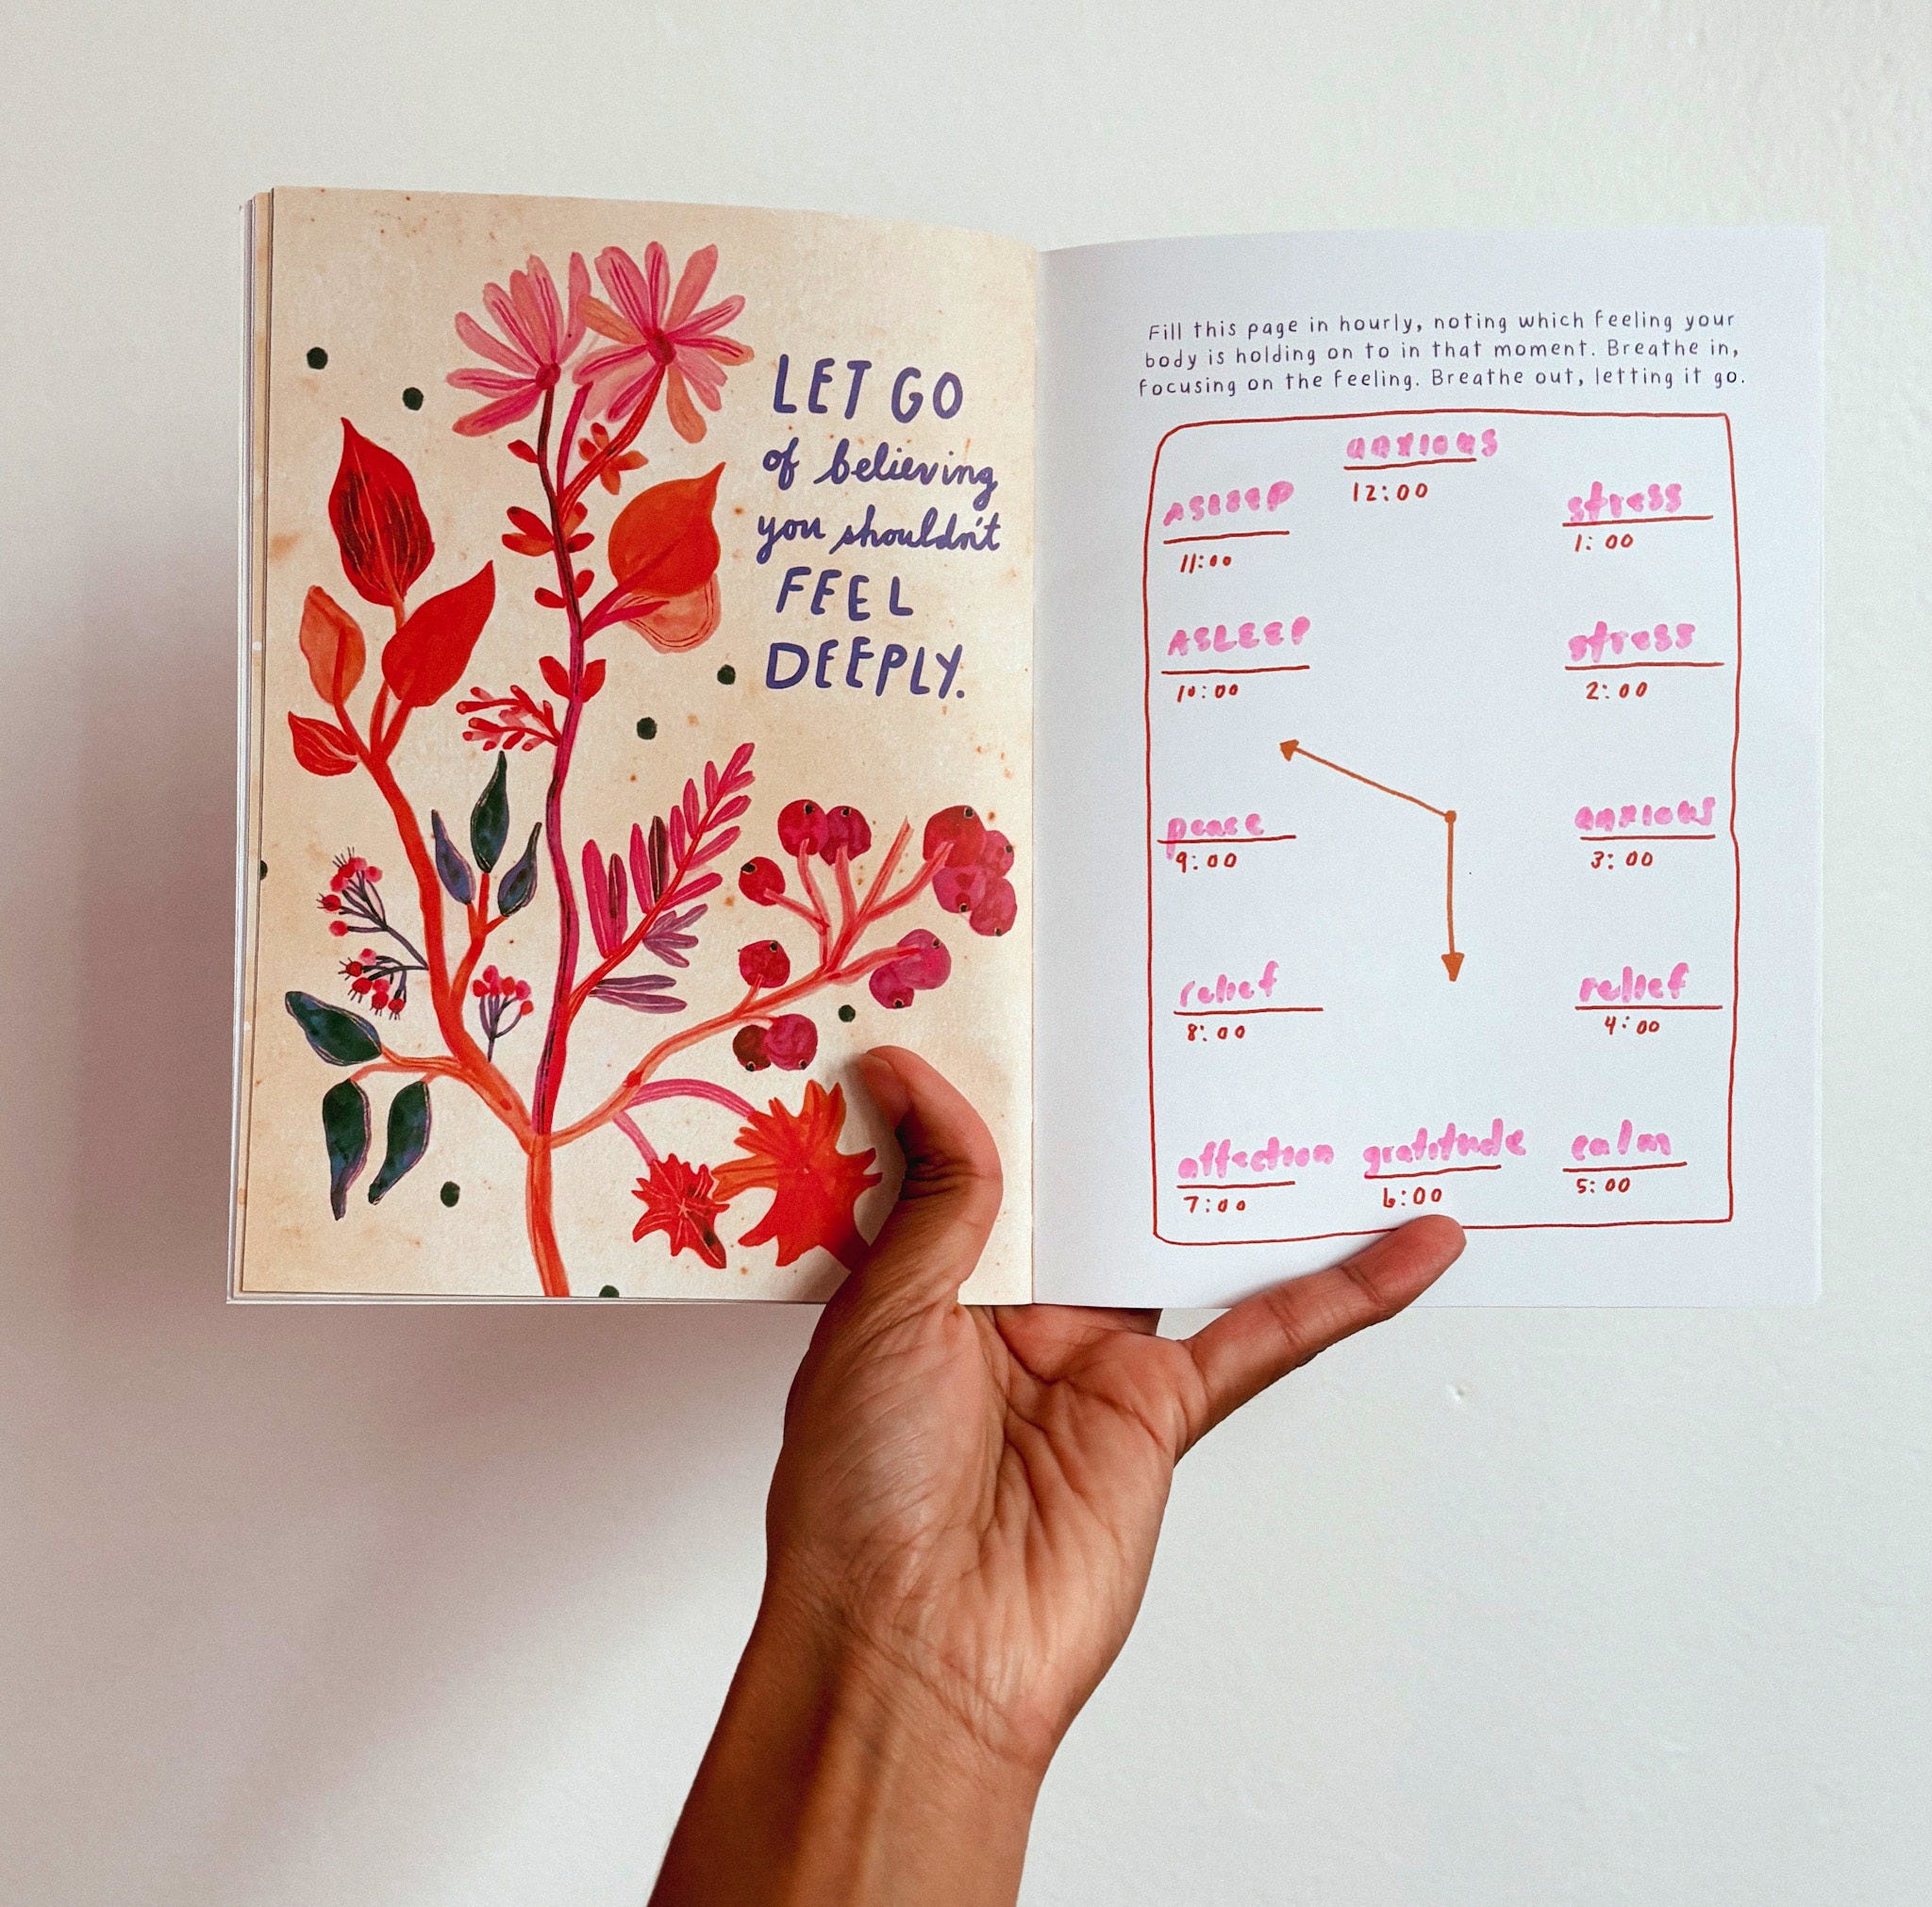 LET GO
of believing
you shouldn't
FEEL
DEEPLY.
Fill this page in hourly, noting which feeling your
body is holding on to in that moment. Breathe in,
focusing on the feeling. Breathe out, letting it go.
anxious
12:00
ASLEEP
11:00
stress
1:00
ASLEEP
10:00
stress
2:00
peace
9:00
anxious
3:00
relief
8:00
relief
4:00
affection
7:00
gratitude
6:00
calm
5:00